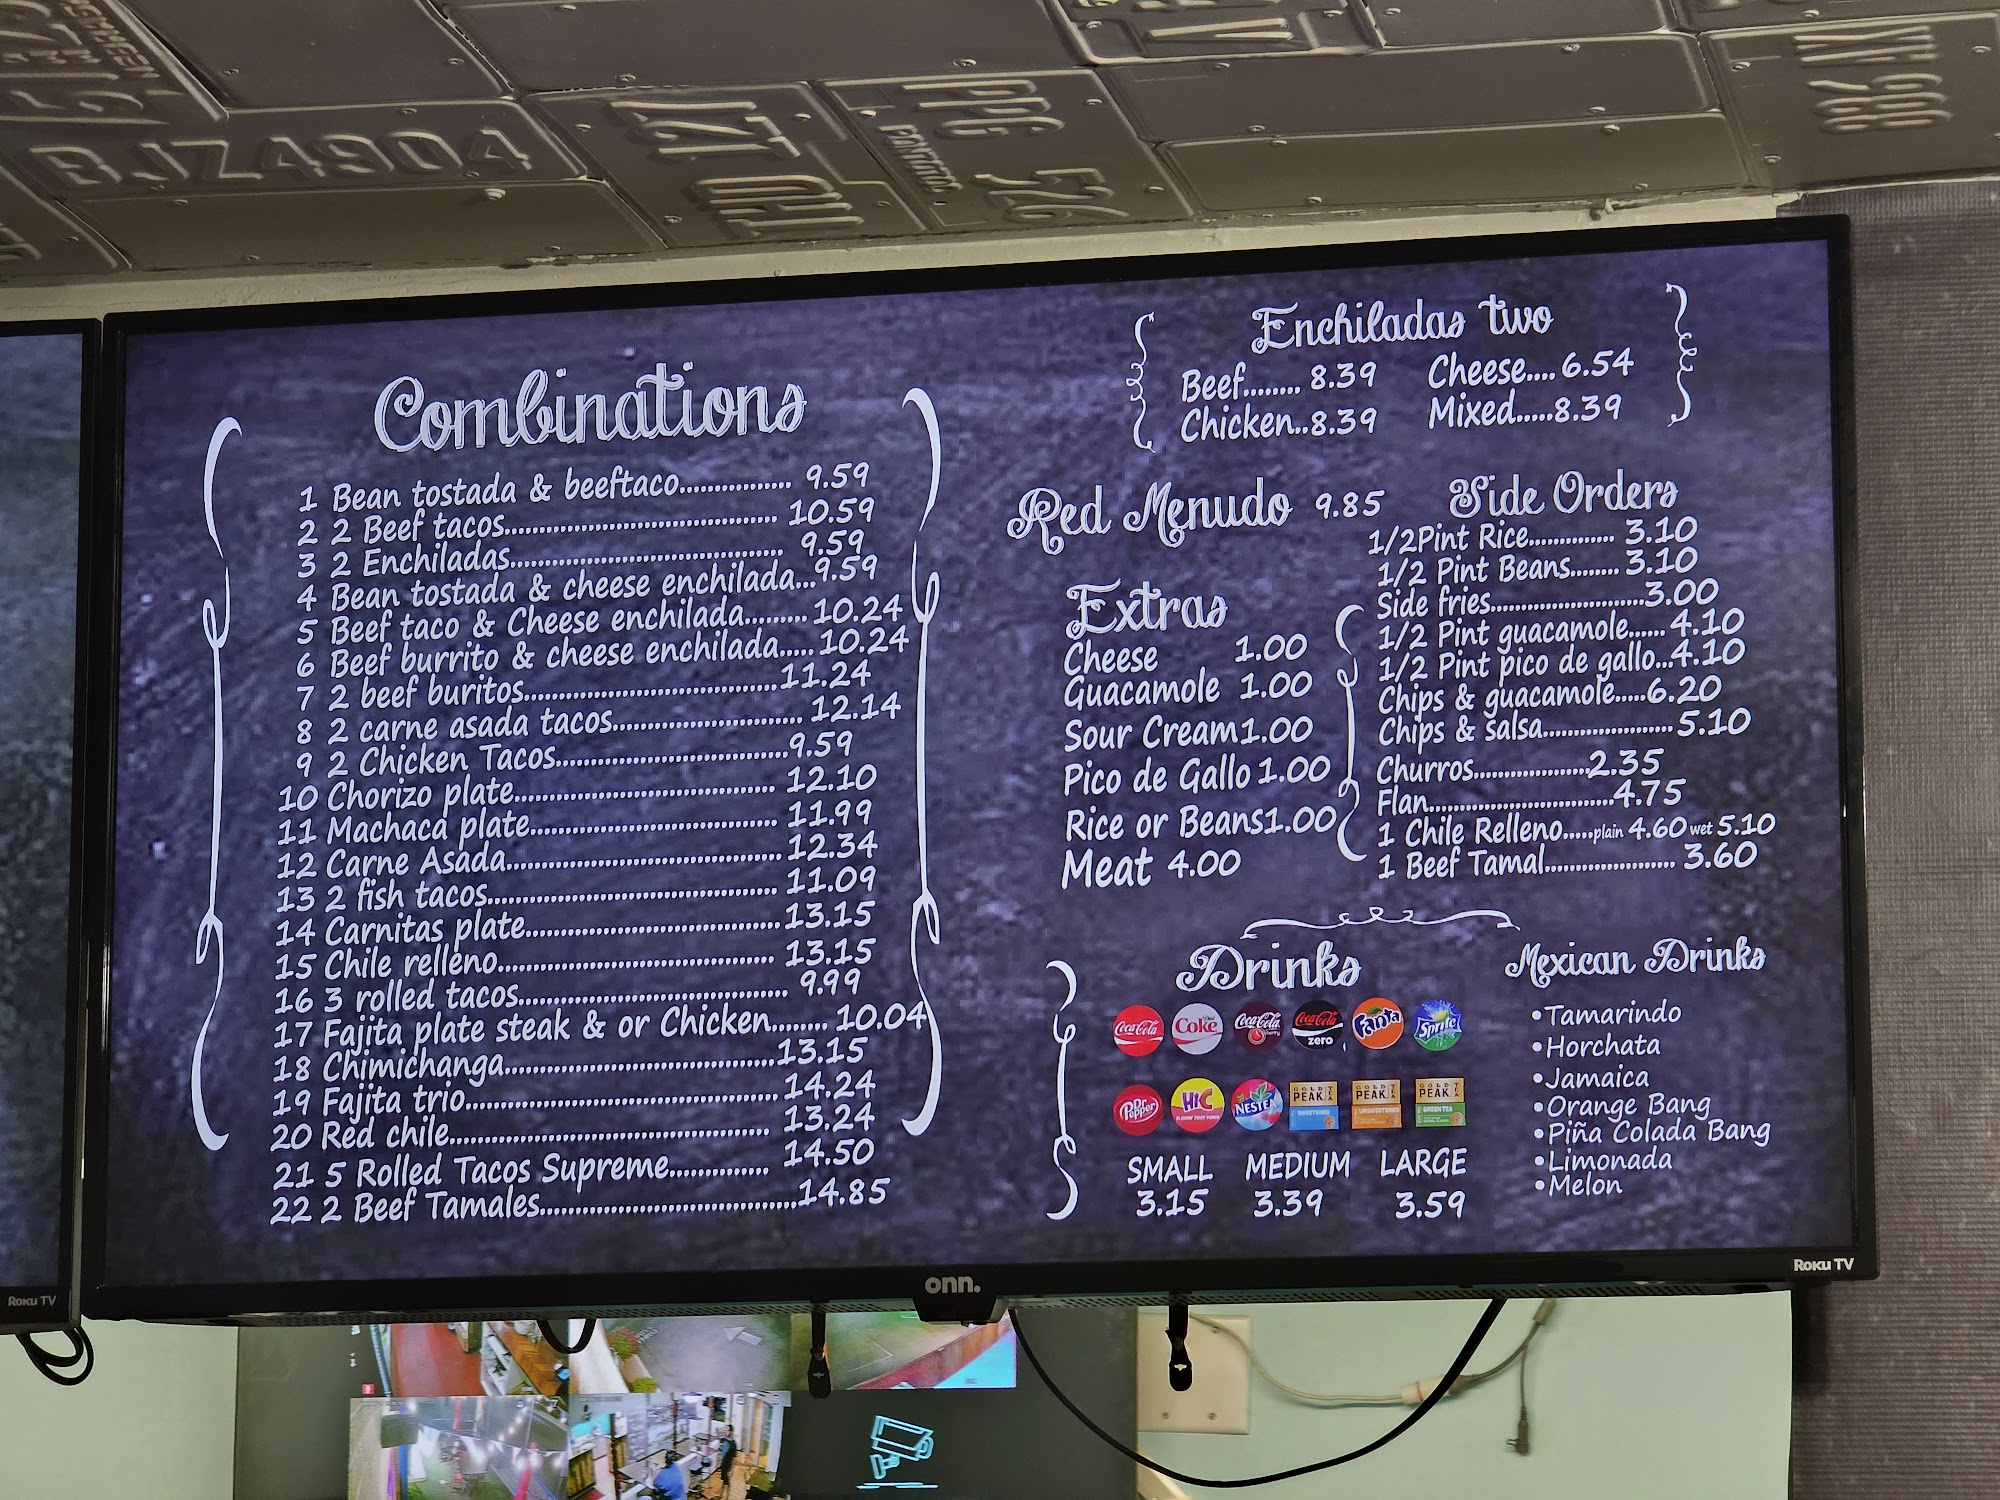 BJZ4904
PPG
526
Combinations
1 Bean tostada & beeftaco............... 9.59
2 2 Beef tacos..................................... 10.59
3 2 Enchiladas..................................... 9.59
4 Bean tostada & cheese enchilada...9.59
5 Beef taco & Cheese enchilada......... 10.24
6 Beef burrito & cheese enchilada..... 10.24
7 2 beef buritos..................................11.24
8 2 carne asada tacos......................... 12.14
9 2 Chicken Tacos...............................9.59
10 Chorizo plate................................... 12.10
11 Machaca plate................................. 11.99
12 Carne Asada..................................... 12.34
13 2 fish tacos....................................... 11.09
14 Carnitas plate..................................13.15
15 Chile relleno..................................... 13.15
16 3 rolled tacos.................................... 9.99
17 Fajita plate steak & or Chicken........ 10.04
18 Chimichanga....................................13.15
19 Fajita trio.......................................... 14.24
20 Red chile........................................... 13.24
21 5 Rolled Tacos Supreme............. 14.50
22 2 Beef Tamales..................................14.85
Enchiladas two
Beef........ 8.39
Cheese.... 6.54
Chicken..8.39
Mixed.....8.39
Red Menudo 9.85
Extras
Cheese 1.00
Guacamole 1.00
Sour Cream1.00
Pico de Gallo 1.00
Rice or Beans1.00
Meat 4.00
Side Orders
1/2Pint Rice............... 3.10
1/2 Pint Beans........ 3.10
Side fries.........................3.00
1/2 Pint guacamole...... 4.10
1/2 Pint pico de gallo...4.10
Chips & guacamole.....6.20
Chips & salsa......................5.10
Churros....................2.35
Flan..............................4.75
1 Chile Relleno.....plain 4.60 wet 5.10
1 Beef Tamal...................... 3.60
Drinks
Coca-Cola
Coke
Coca-Cola
Coca-Cola zero
Fanta
Sprite
Dr Pepper
Hi-C
NESTEA
GOLD PEAK TEA SWEETENED
GOLD PEAK TEA UNSWEETENED
GOLD PEAK TEA GREEN TEA
SMALL MEDIUM LARGE
3.15 3.39 3.59
Mexican Drinks
•Tamarindo
•Horchata
•Jamaica
•Orange Bang
•Piña Colada Bang
•Limonada
•Melon
onn.
Roku TV
Roku TV